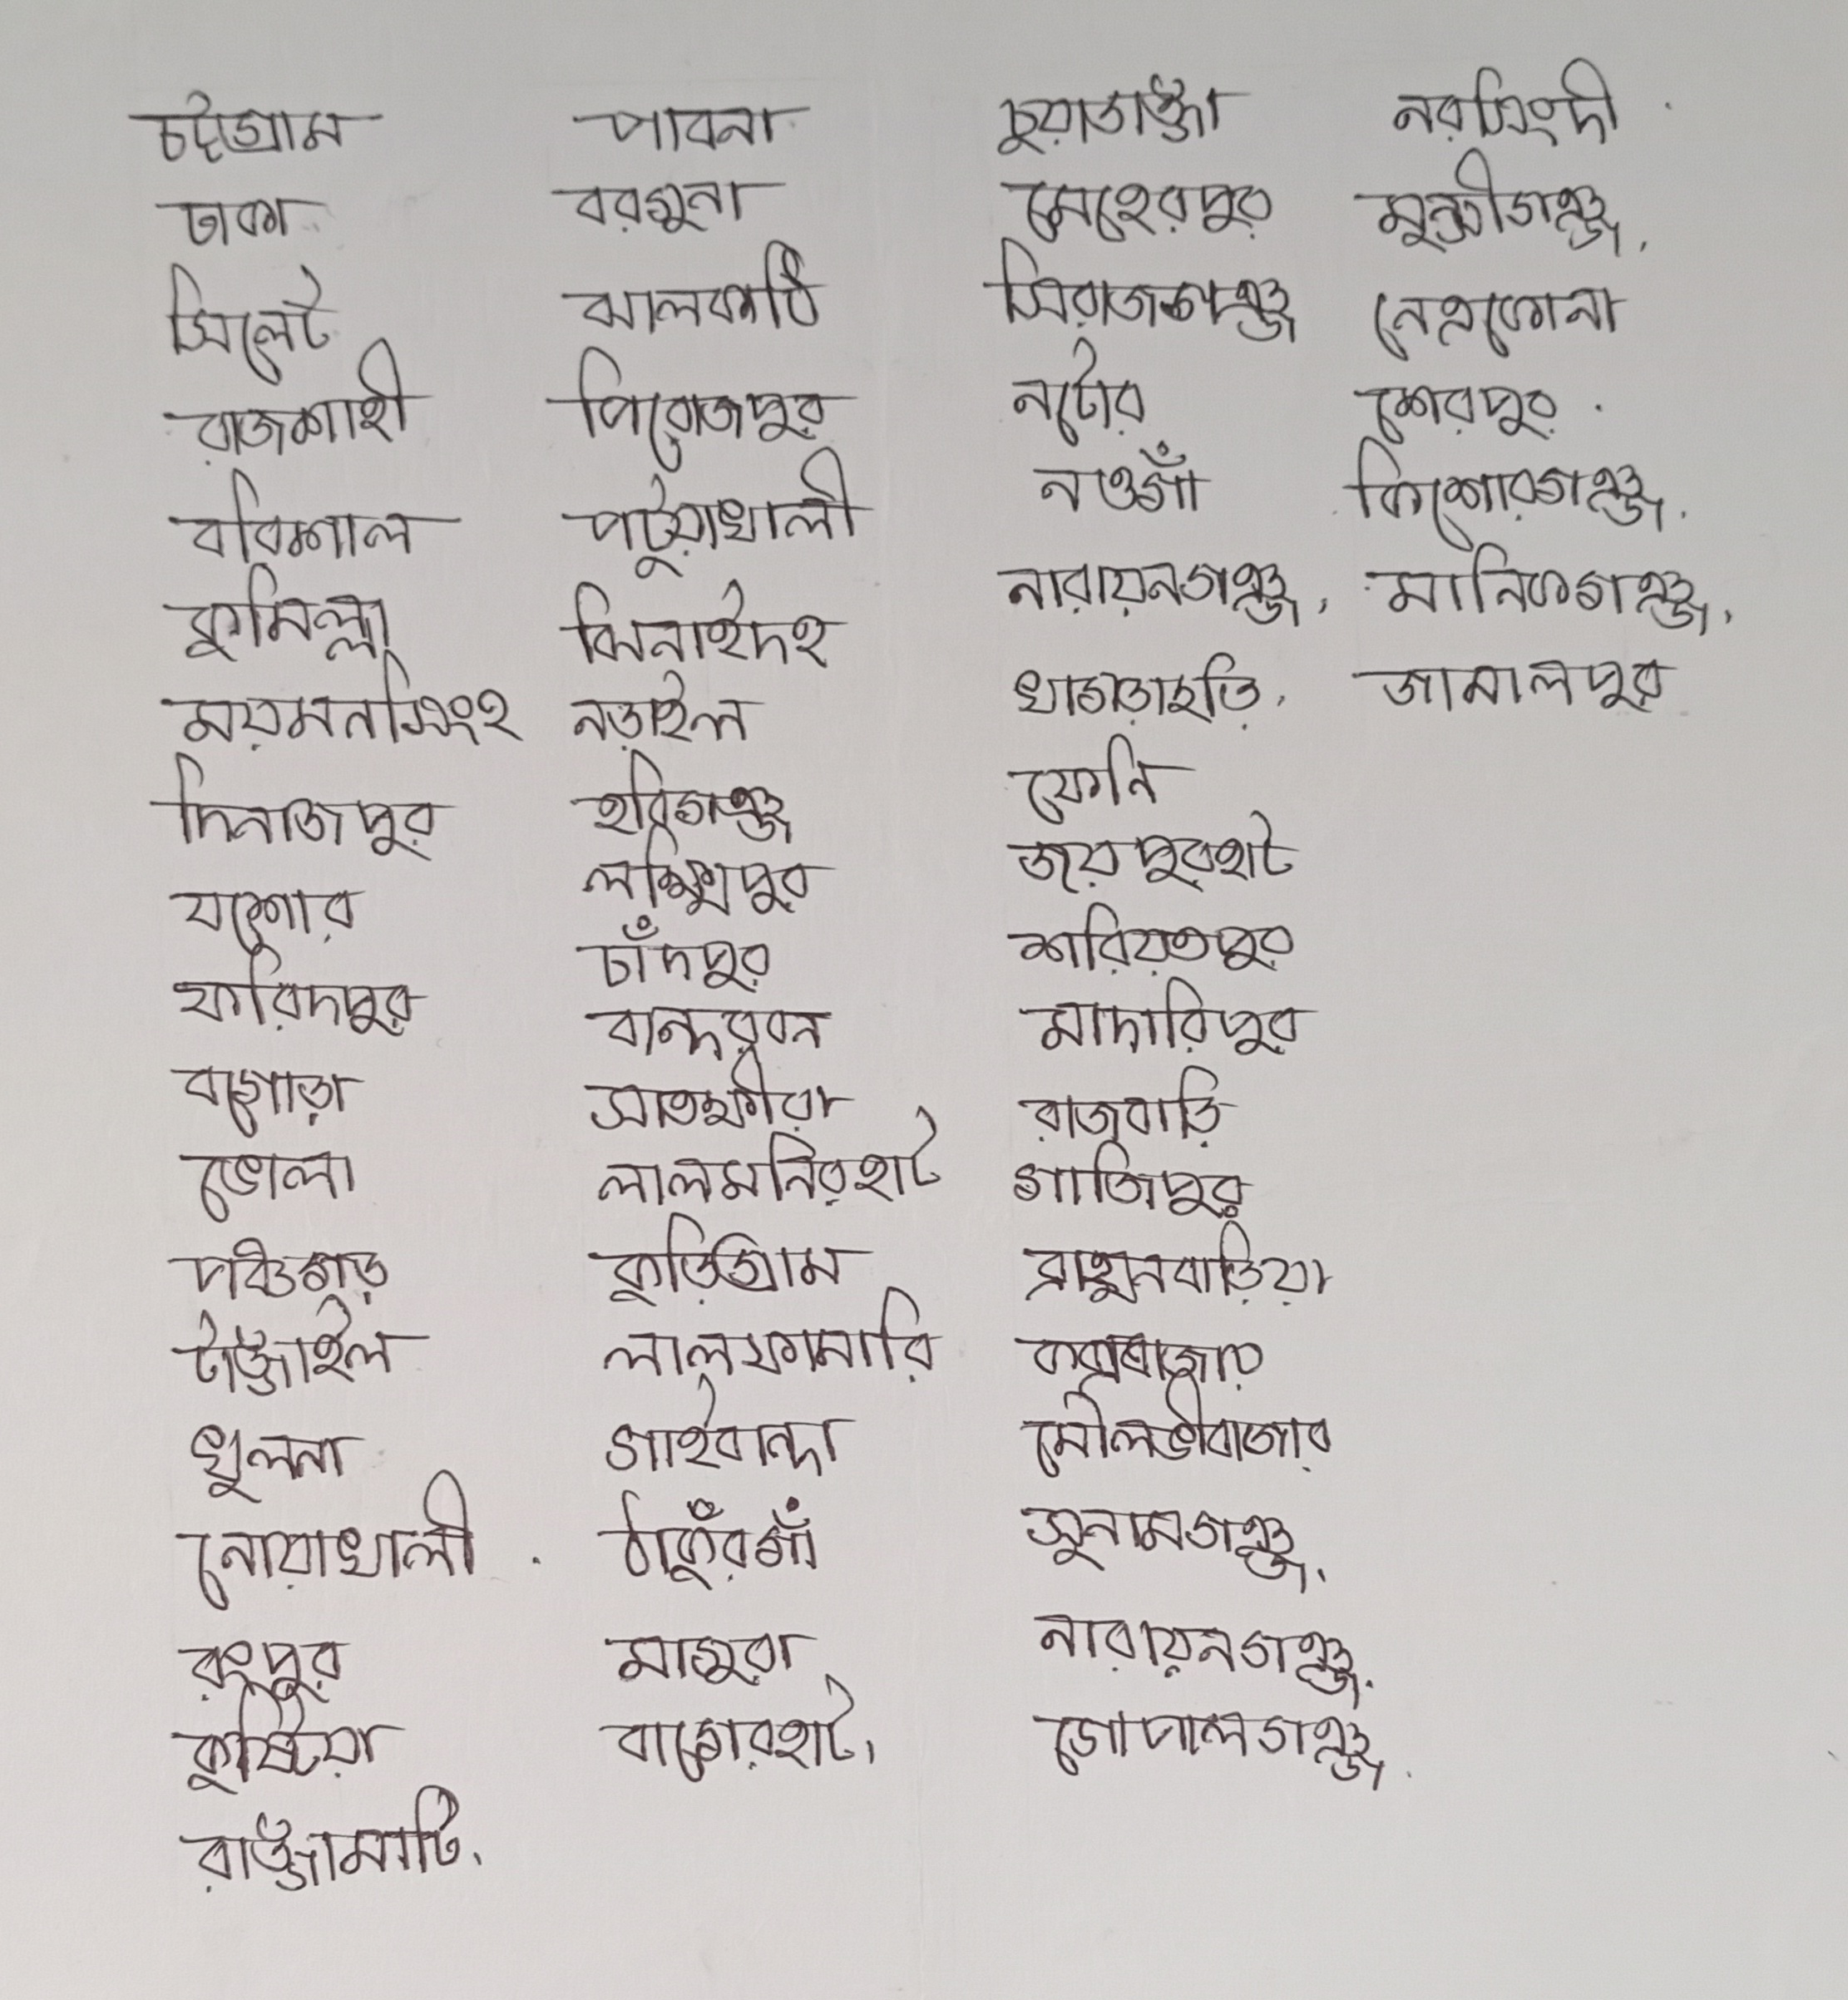 চট্টগ্রাম
ঢাকা
সিলেট
রাজশাহী
বরিশাল
কুমিল্লা
ময়মনসিংহ
দিনাজপুর
যশোর
ফরিদপুর
বগোড়া
ভোলা
পঞ্চগড়
টাঙ্গাইল
খুলনা
নোয়াখালী
রংপুর
কুষ্টিয়া
রাঙ্গামাটি.
পাবনা
বরগুনা
ঝালকাঠি
পিরোজপুর
পটুয়াখালী
ঝিনাইদহ
নড়াইল
হবিগঞ্জ
লক্ষ্মিপুর
চাঁদপুর
বান্দরবন
সাতক্ষীরা
লালমনিরহাট
কুড়িগ্রাম
লালফামারি
গাইবান্দা
ঠাকুঁরগাঁ
মাগুরা
বাগেরহাট.
চুয়াডাঙ্গা
মেহেরপুর
সিরাজগঞ্জ
নটোর
নওগাঁ
নারায়নগঞ্জ,
খাগড়াছড়ি.
ফেনি
জয়পুরহাট
শরিয়তপুর
মাদারিপুর
রাজবাড়ি
গাজিপুর
ব্রাহ্মনবাড়িয়া
কক্সবাজার
মৌলভীবাজার
সুনামগঞ্জ.
নারায়নগঞ্জ.
গোপালগঞ্জ.
নরসিংদী.
মুন্সীগঞ্জ,
নেত্রকোনা
শেরপুর.
কিশোরগঞ্জ.
মানিকগঞ্জ,
জামালপুর